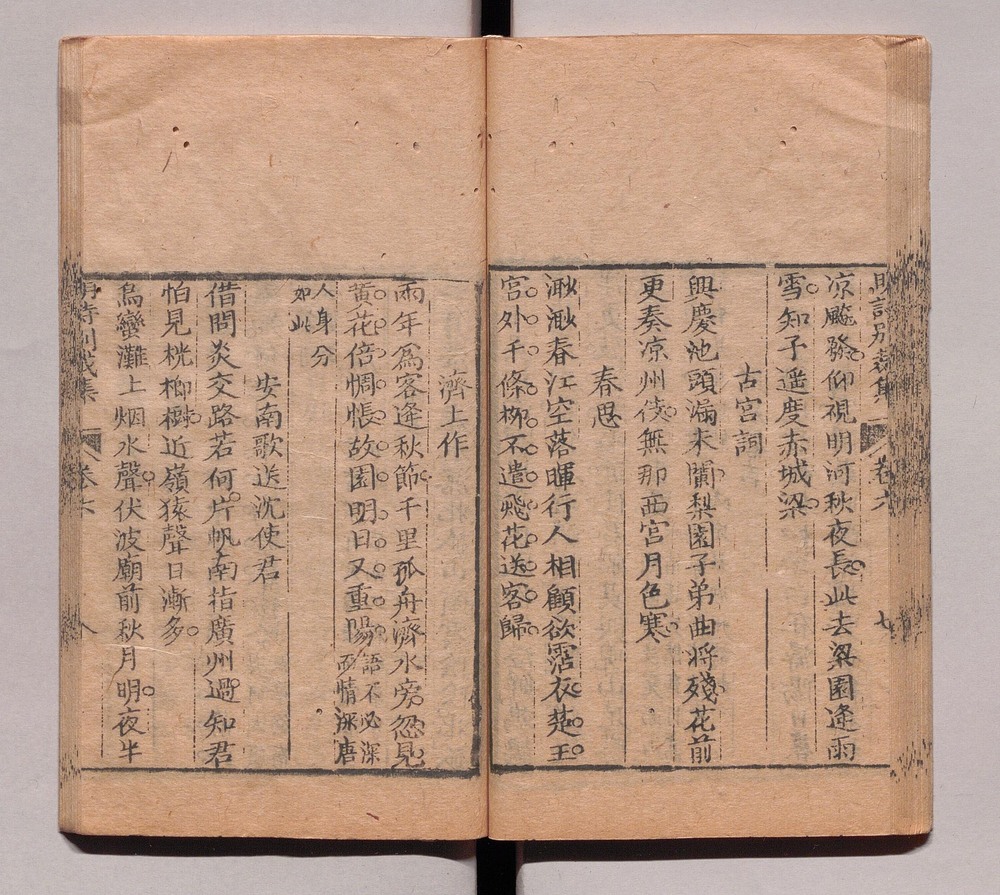 明詩別裁集 卷六 七
凉颷發仰視明河秋夜長此去梁園逢雨
雪知子遥度赤城梁
古宮詞
興慶池頭漏未闌梨園子弟曲将殘花前
更奏凉州伎無那西宮月色寒
春思
渺渺春江空落暉行人相顧欲霑衣楚王
宮外千條栁不遣飛花送客歸
濟上作
兩年爲客逢秋節千里孤舟濟水旁忽見
黄花倍惆悵故園明日又重陽語不必深
而情深唐
人身分
如此
安南歌送沈使君
借問炎交路若何片帆南指廣州過知君
怕見桄榔樹近嶺猿聲日漸多
烏蠻灘上烟水聲伏波廟前秋月明夜半
明詩別裁集 卷六 八